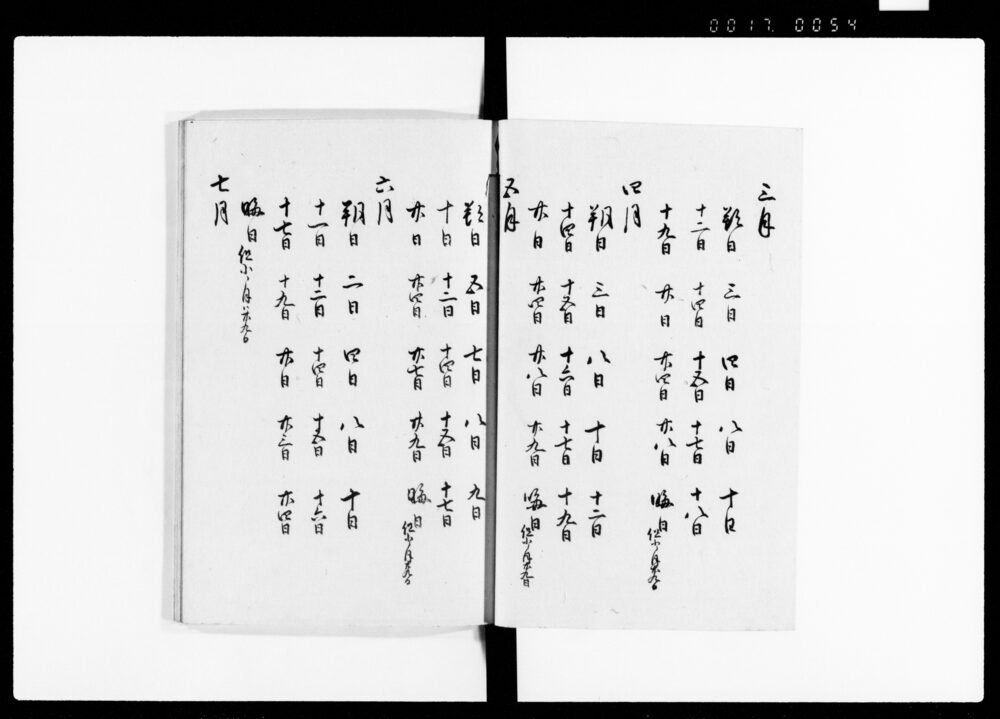 0017.0054
三月
朔日 三日 四日 八日 十日
十二日 十四日 十五日 十七日 十八日
十九日 廿日 廿四日 廿八日 晦日但小月廿九日
四月
朔日 三日 八日 十日 十二日
十四日 十五日 十六日 十七日 十九日
廿日 廿四日 廿八日 廿九日 晦日但小月廿九日
五月
朔日 五日 七日 八日 九日
十日 十二日 十四日 十五日 十七日
廿日 廿四日 廿七日 廿九日 晦日但小月廿九日
六月
朔日 二日 四日 八日 十日
十一日 十二日 十四日 十五日 十六日
十七日 十九日 廿日 廿三日 廿四日
晦日但小月廿九日
七月